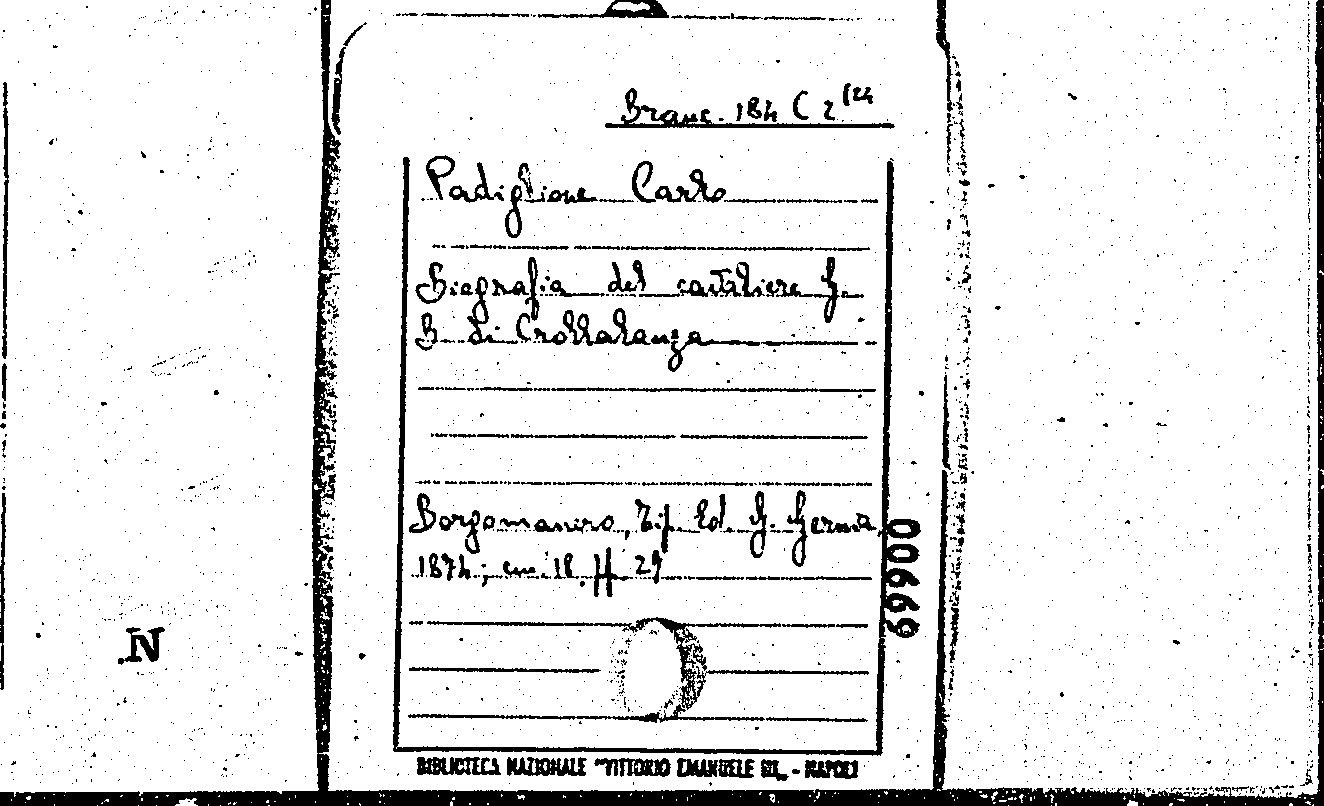 Branc. 184 C 2(24
Padiglione Carlo
Biografia del cavaliere G.
B. di Crollalanza
Borgomanero, Tip. Ed. G.
1874; cm. 18. pp. 29
00669
N
BIBLIOTECA NAZIONALE "VITTORIO EMANUELE III„ - NAPOLI